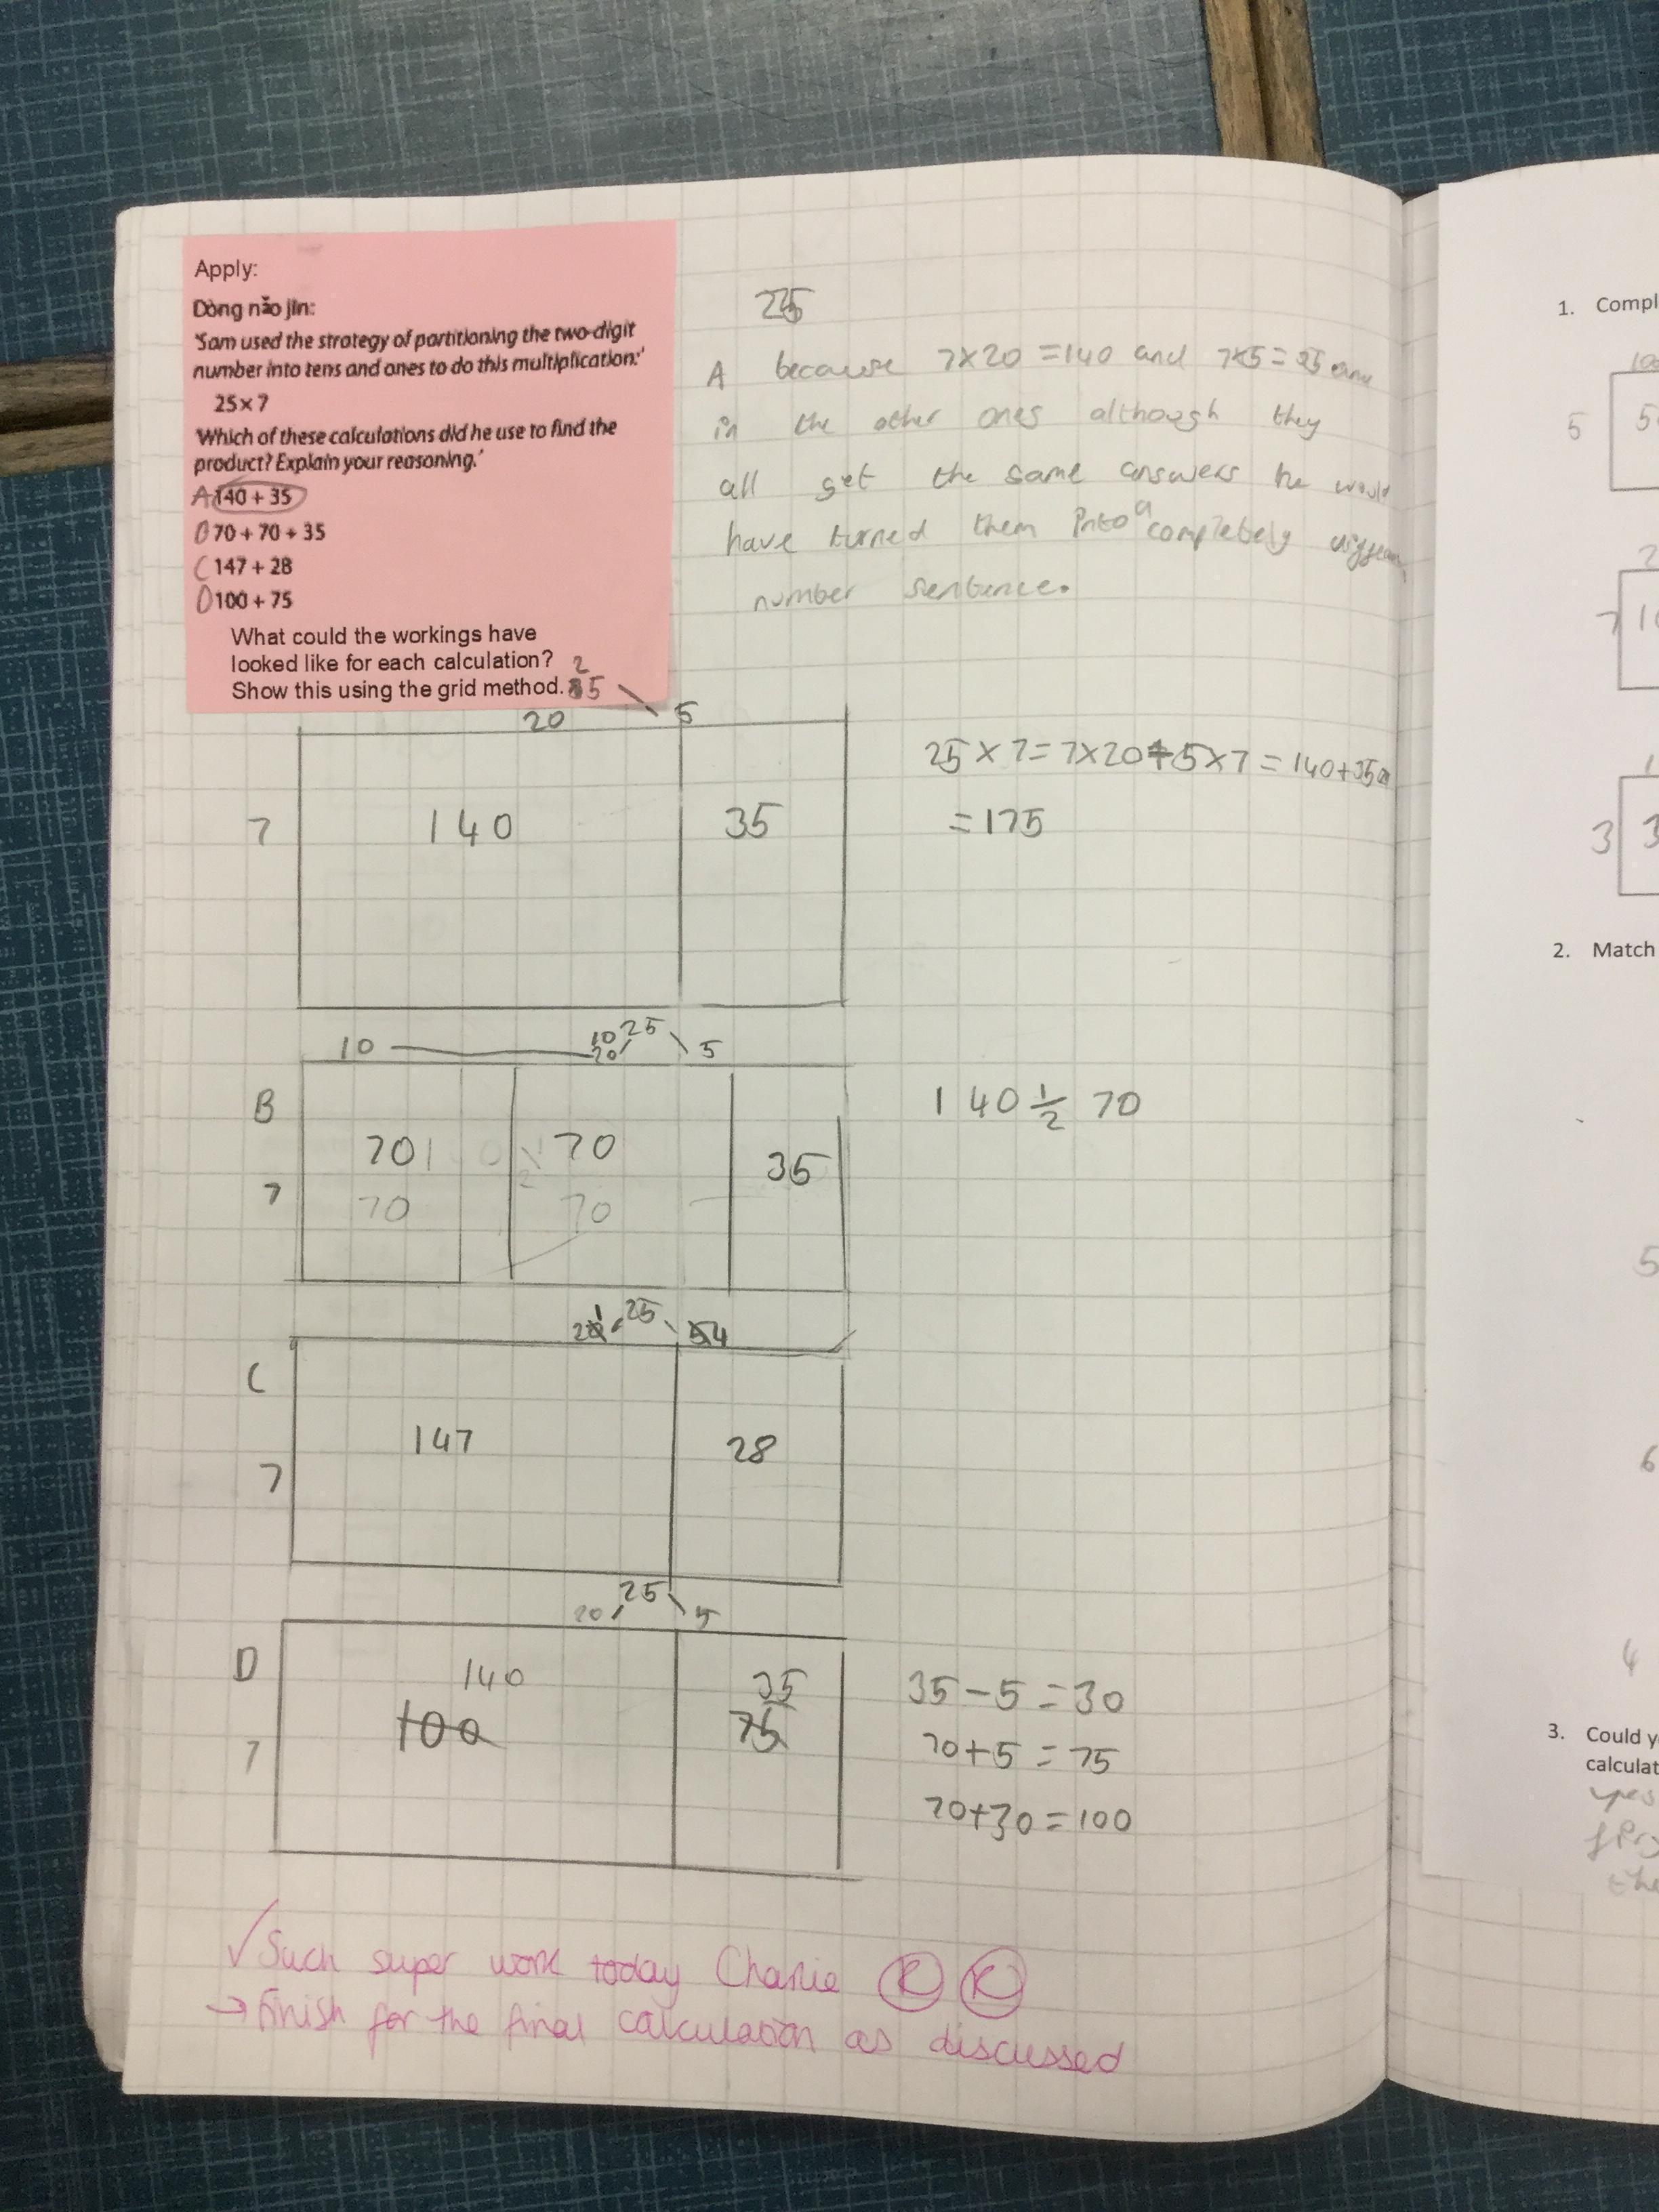 Apply:
Dòng nǎo jīn:
'Sam used the strategy of partitioning the two-digit
number into tens and ones to do this multiplication:'
25 × 7
'Which of these calculations did he use to find the
product? Explain your reasoning.'
A 140 + 35
B 70 + 70 + 35
C 147 + 28
D 100 + 75
What could the workings have
looked like for each calculation?
Show this using the grid method.
25
A because 7×20=140 and 7×5=35 and
in the other ones although they
all get the same answers he would
have turned them into a completely
number sentence.
25
20 5
7 140 35
25×7=7×20+5×7=140+35
=175
10 10 25 5
20
B
70 70 35
7
70 70
140 ½ 70
21 25 4
C
147 28
7
25
20 5
D
140 35
100 75
7
35-5=30
70+5=75
70+30=100
✓ Such super work today Charlie
→ Finish for the final calculation as discussed
1. Compl
5
7
3 3
2. Match
5
6
4
3. Could y
calculat
yes
the